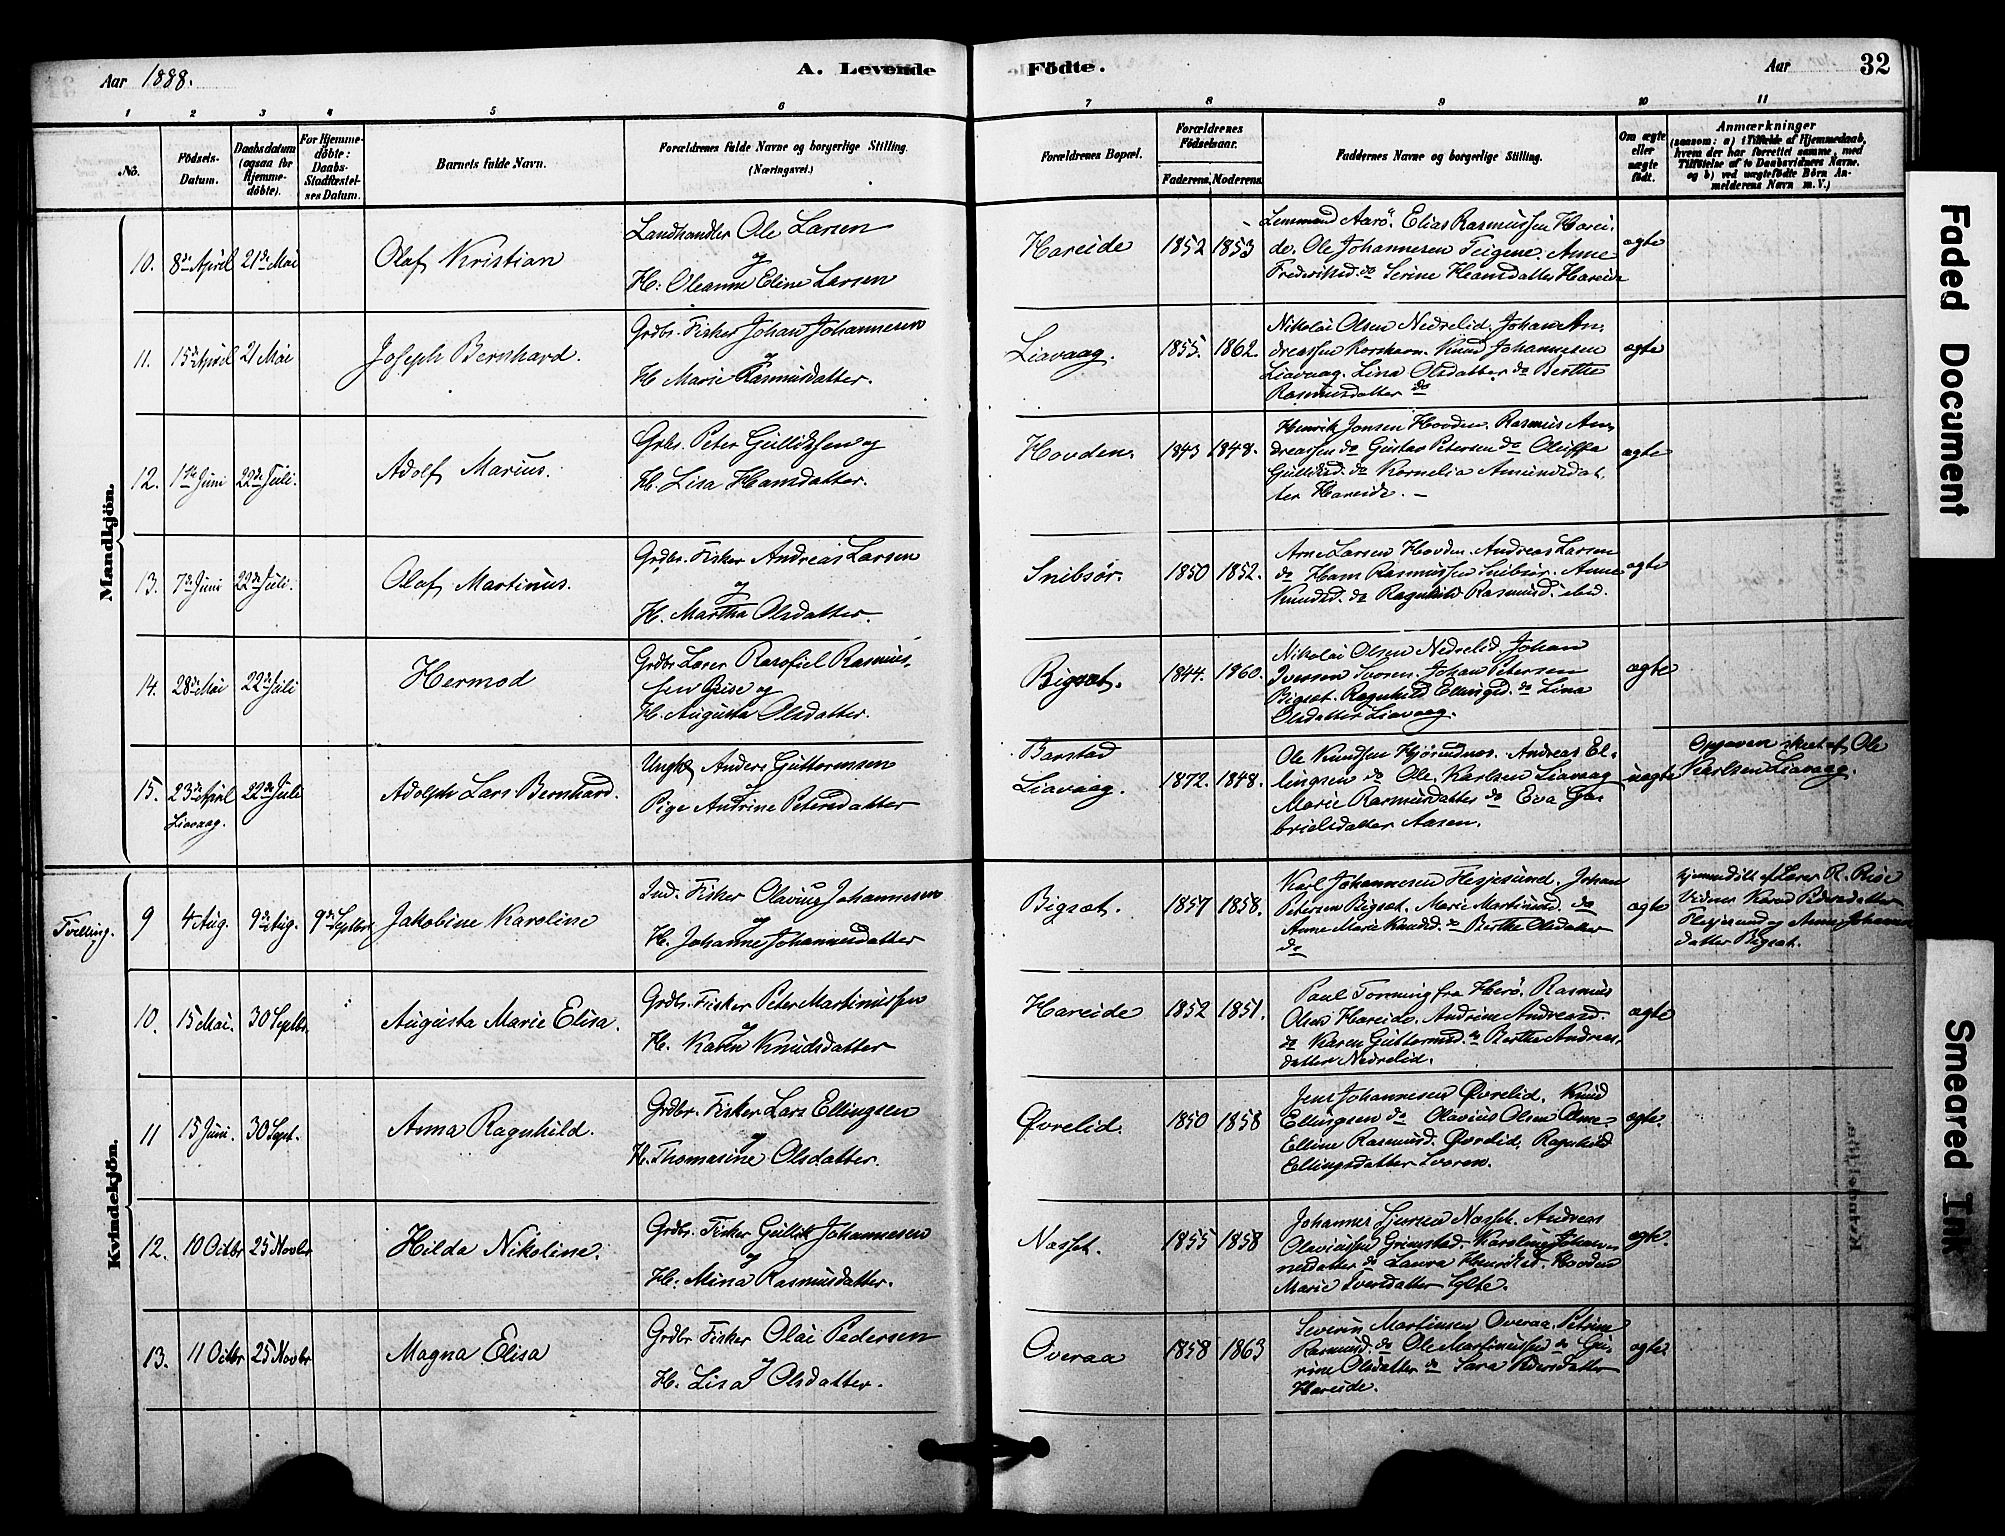 Aar 1888.
A. Levende Födte.
Aar
32
1 2 3 4 5 6 7 8 9 10 11
No.
Födsels-Datum.
Daabsdatum (ogsaa for Hjemme-döbte).
For Hjemme-döbte: Daabs-Stadfæstel-ses Datum.
Barnets fulde Navn.
Forældrenes fulde Navne og borgerlige Stilling. (Næringsvei.)
Forældrenes Bopæl.
Forældrenes Födselsaar.
Faderens. Moderens.
Faddernes Navne og borgerlige Stilling.
Om ægte eller uægte födt.
Anmærkninger
(saasom: a) i Tilfælde af Hjemmedaab,
hvem der har forrettet samme, med
Tilföielse af to Daabsvidners Navne.
og b) ved uægtefödte Börn An-
melderens Navn m. V.)
Mandkjön.
10. 8de April 21de Mai
Olaf Kristian
Landhandler Ole Larsen
og
H: Oleanne Eline Larsen
Hareide
1852 1853
Lensmand Aarö. Elias Rasmussen Harei-
de. Ole Johannesen Teigene. Anne
Frederiksd. do Serine Hansdatter Hareide
ægte
11. 15de April 21 Mai
Joseph Bernhard.
Grdbr. Fisker Johan Johannesen
og
H. Marie Rasmusdatter.
Liavaag.
1855. 1862.
Nikolai Olsen Nedrelid. Johan An-
dreassen Korshavn. Knud Johannesen
Liavaag. Lina Olsdatter do Berthe
Rasmusdatter do
ægte
12. 1ste Juni 22de Juli.
Adolf Marius.
Grbr. Peter Gulliksen og
H. Lisa Hansdatter.
Hovden.
1843 1848.
Henrik Jonsen Hovden. Rasmus An-
dreassen do Gustav Petersen do Oluffa
Gulliksd. do Kornelia Amundsdat-
ter Hareide. –
ægte
13. 7de Juni 22de Juli.
Olaf Martinus.
Grdbr. Fisker Andreas Larsen
og
H. Martha Olsdatter.
Snibsör.
1850 1852.
Arne Larsen Hovden. Andreas Larsen
do Hans Rasmussen Snibsör. Anne
Knudsd. do Ragnhild Rasmusd. ibid.
ægte
14. 28de Mai 22de Juli
Hermod
Grdbr. Lærer Rasmus-
sen Riise og
H. Augusta Olsdatter.
Bigsæt.
1844. 1860.
Nikolai Olsen Nedrelid Johan
Iversen Svoren. Johan Petersen
Bigsæt. Ragnhild Ellingsd. do Lina
Olsdatter Liavaag.
ægte
15. 23de April 22de Juli
Liavaag.
Adolph Lars Bernhard.
Ungk. Anders Guttormsen
og
Pige Andrine Petersdatter
Barstad
Liavaag.
1872. 1848.
Ole Knudsen Hjörundnes. Andreas El-
lingsen do Ole Karlsen Liavaag
Marie Rasmusdatter do Eva Ga-
brielsdatter Aasen.
uægte
Opgaven skeet af Ole
Karlsen Liavaag.
Kvindekjön.
Tvilling.
9 4 Aug. 9de Aug. 9de Septbr
Jakobine Karoline
Ind. Fisker Olavius Johannesen
og
H. Johanne Johannesdatter
Bigsæt.
1857 1858.
Karl Johannesen Hesjesund. Johan
Petersen Bigsæt. Marie Martinusd. do
Anne Marie Knudsd. do Berthe Olsdatter
do
ægte
hjemmedöbt af Lærer R. Riise
Vidner Karen Pedersdatter
Hesjesund og Anne Johannes-
datter Bigsæt.
10. 15 Mai. 30 Septbr.
Augusta Marie Elisa.
Grdbr. Fisker Peter Martinussen
og
H. Karen Knudsdatter
Hareide
1852 1851.
Paul Tonning fra Herö. Rasmus
Olsen Hareide. Andrine Andreasd.
do Karen Guttormsd. do Berthe Andreas-
datter Nedrelid.
ægte
11 15 Juni. 30 Sept.
Anna Ragnhild.
Grdbr. Fisker Lars Ellingsen
og
H. Thomasine Olsdatter.
Øvrelid.
1850 1858
Jens Johannesen Øvrelid. Knud
Ellingsen do Olavius Olsen
Elline Rasmusd. Øvrelid. Ragnhild
Ellingsdatter Svoren.
ægte.
12. 10 Octbr 25 Novbr
Hilda Nikoline.
Grdbr. Fisker Gullik Johannesen
og
H. Mina Rasmusdatter.
Næsset.
1855 1858
Johannes Sjursen Næsset. Andreas
Olaviussen Grimstad. Karoline Johan-
nesdatter do Laura Henriksd. Hovden
Marie Iversdatter Hylte.
ægte.
13. 11 Octbr 25 Novbr
Magna Elisa
Grdbr Fisker Olai Pedersen
og
H. Lisa Olsdatter.
Overaa
1858 1863
Severin Martinsen Overaa. Petrine
Rasmusd. do Ole Martinussen do Gu-
rine Olsdatter do Sara Pedersdatter
Hareide.
ægte
Faded Document
Smeared Ink